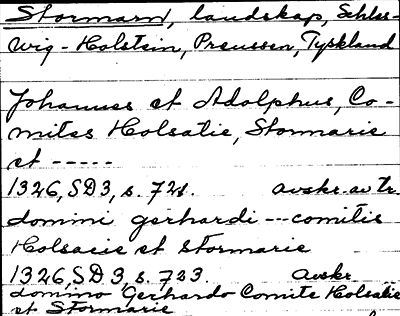 Stormarn, landskap, Schles-
wig-Holstein, Preussen, Tyskland
Johannes et Adolphus, Co-
mites Holsatie, Stormarie
et -----
1326, SD 3, s. 721. avskr. av tr.
domini gerhardi --- comitis
Holsacie et stormarie
1326, SD 3, s. 723. avskr.
domino Gerhardo Comite Holsatie
et Stormarie